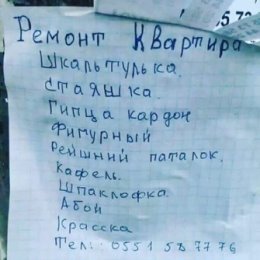 5.72
Ремонт Квартира
Шкальтулька.
Стаяшка.
Гипца кардон
Фигурный
Рейшний паталок.
Кафель.
Шпаклофка
Абой
Красска
Тел: 0551 58 77 76